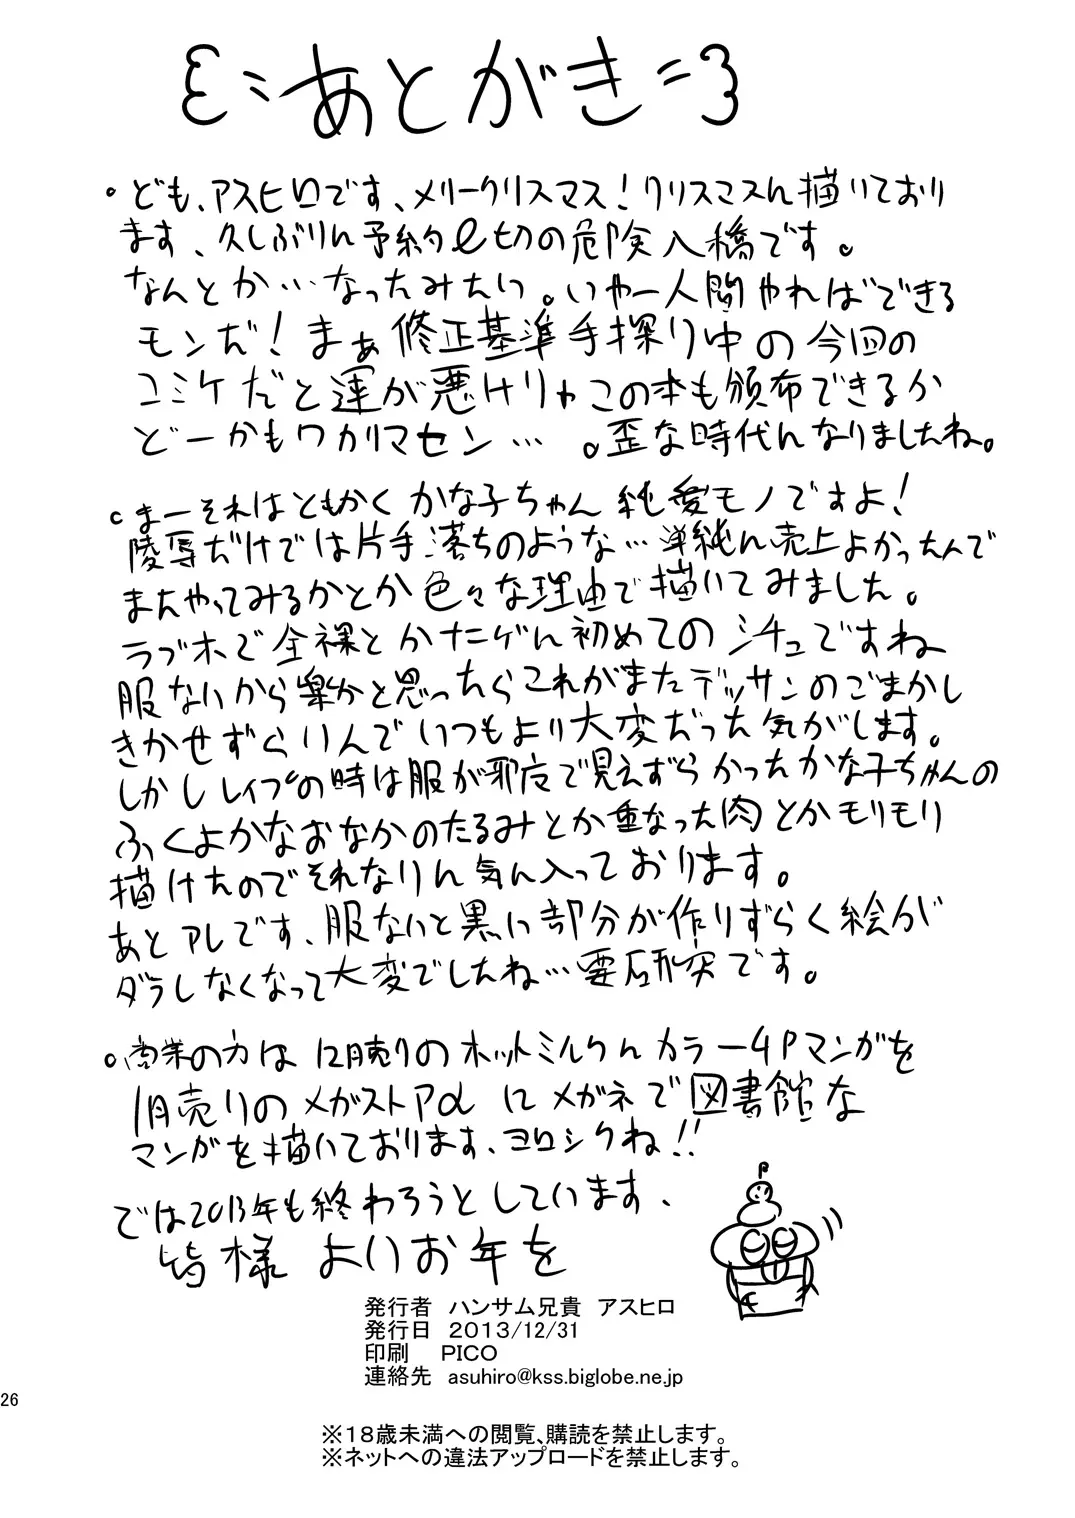 あとがき
・ども、アスヒロです、メリークリスマス！クリスマスに描いており
ます、久しぶりに予約〆切の危険入稿です。
なんとか…なったみたい。いやー人間やればできる
モンだ！まぁ修正基準手探り中の今回の
コミケだと運が悪けりゃこの本も頒布できるか
どーかもワカリマセン…。歪な時代になりましたね。
・まーそれはともかくかな子ちゃん純愛モノですよ！
陵辱だけでは片手落ちのような…単純に売上よかったんで
またやってみるかとか色々な理由で描いてみました。
ラブホで全裸とかナニゲに初めてのシチュですね
服ないから楽かと思ったらこれがまたデッサンのごまかし
きかせずらいんでいつもより大変だった気がします。
しかしレイプの時は服が邪魔で見えずらかったかな子ちゃんの
ふくよかなおなかのたるみとか重なった肉とかモリモリ
描けたのでそれなりに気に入っております。
あとアレです、服ないと黒い部分が作りずらく絵が
ダラしなくなって大変でしたね…要研究です。
・商業の方は12月売りのホットミルクにカラー4Pマンガを
1月売りのメガストアαにメガネで図書館な
マンガを描いております、ヨロシクね!!
では2013年も終わろうとしています、
皆様よいお年を
発行者　ハンサム兄貴　アスヒロ
発行日　2013/12/31
印刷　PICO
連絡先　asuhiro@kss.biglobe.ne.jp
26
※18歳未満への閲覧、購読を禁止します。
※ネットへの違法アップロードを禁止します。